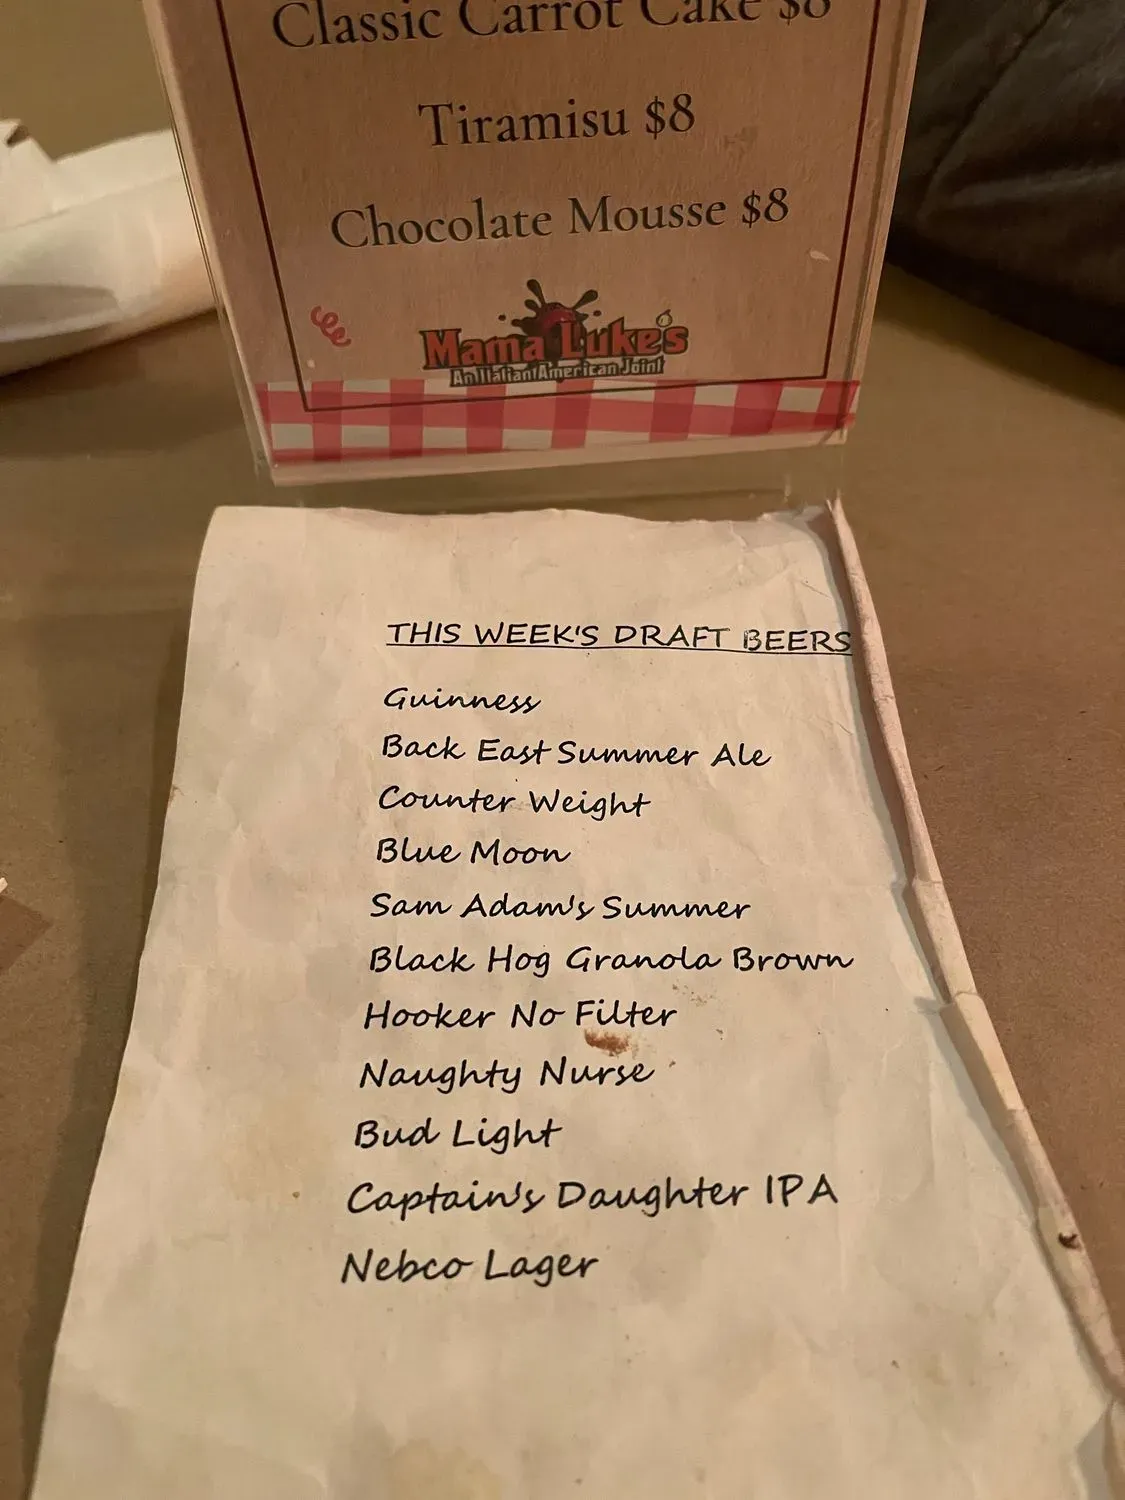 Classic Carrot Cake $8
Tiramisu $8
Chocolate Mousse $8
Mama Luke's
An Italian American Joint
THIS WEEK'S DRAFT BEERS
Guinness
Back East Summer Ale
Counter Weight
Blue Moon
Sam Adam's Summer
Black Hog Granola Brown
Hooker No Filter
Naughty Nurse
Bud Light
Captain's Daughter IPA
Nebco Lager